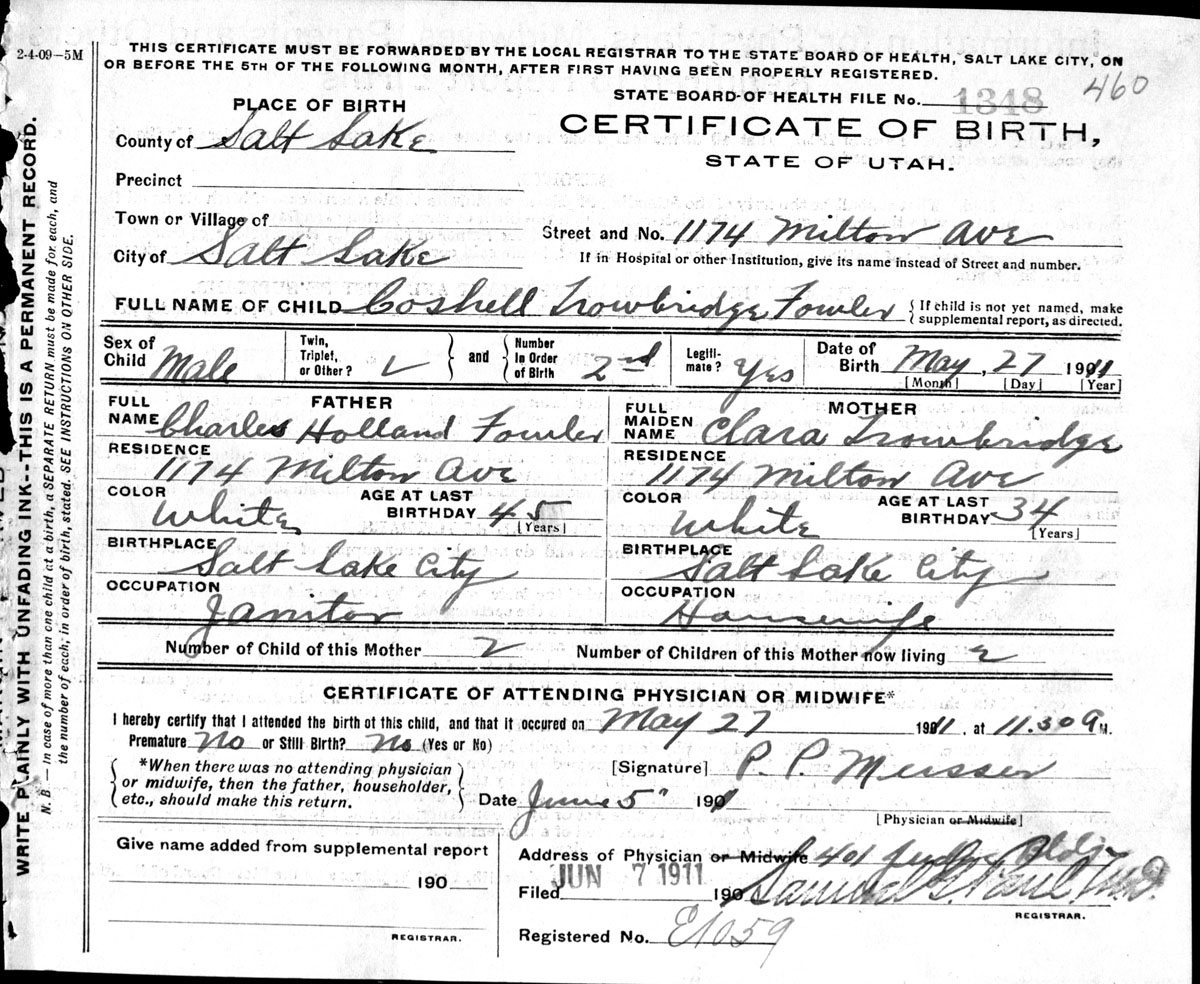 2-4-09—5M
THIS CERTIFICATE MUST BE FORWARDED BY THE LOCAL REGISTRAR TO THE STATE BOARD OF HEALTH, SALT LAKE CITY, ON
OR BEFORE THE 5TH OF THE FOLLOWING MONTH, AFTER FIRST HAVING BEEN PROPERLY REGISTERED.
460
STATE BOARD OF HEALTH FILE No. 1348
PLACE OF BIRTH
CERTIFICATE OF BIRTH,
STATE OF UTAH.
County of Salt Lake
Precinct
Town or Village of
Street and No. 1174 Milton Ave
City of Salt Lake
If in Hospital or other Institution, give its name instead of Street and number.
FULL NAME OF CHILD Coshell Trowbridge Fowler { If child is not yet named, make supplemental report, as directed.
Sex of Child Male Twin, Triplet, or Other? and Number in Order of Birth 2nd Legitimate? Yes Date of Birth May, 27 1911
[Month] [Day] [Year]
FATHER
FULL NAME Charles Holland Fowler
RESIDENCE
1174 Milton Ave
COLOR White AGE AT LAST BIRTHDAY 45 [Years]
BIRTHPLACE
Salt Lake City
OCCUPATION
Janitor
MOTHER
FULL MAIDEN NAME Clara Trowbridge
RESIDENCE
1174 Milton Ave
COLOR White AGE AT LAST BIRTHDAY 34 [Years]
BIRTHPLACE
Salt Lake City
OCCUPATION
Housewife
Number of Child of this Mother 2 Number of Children of this Mother now living 2
CERTIFICATE OF ATTENDING PHYSICIAN OR MIDWIFE*
I hereby certify that I attended the birth of this child, and that it occured on May 27 1911, at 11.30 a M.
Premature No or Still Birth? No (Yes or No)
*When there was no attending physician
or midwife, then the father, householder,
etc., should make this return.
[Signature] P. P. Musser
Date June 5" 1911
[Physician or Midwife]
Give name added from supplemental report
190
REGISTRAR.
Address of Physician or Midwife 401 Judge Bldg
Filed JUN 7 1911 190 Samuel G. Paul M.D.
REGISTRAR.
Registered No. E1059
WRITE PLAINLY WITH UNFADING INK--THIS IS A PERMANENT RECORD.
N. B.—In case of more than one child at a birth, a SEPARATE RETURN must be made for each, and
the number of each, in order of birth, stated. SEE INSTRUCTIONS ON OTHER SIDE.